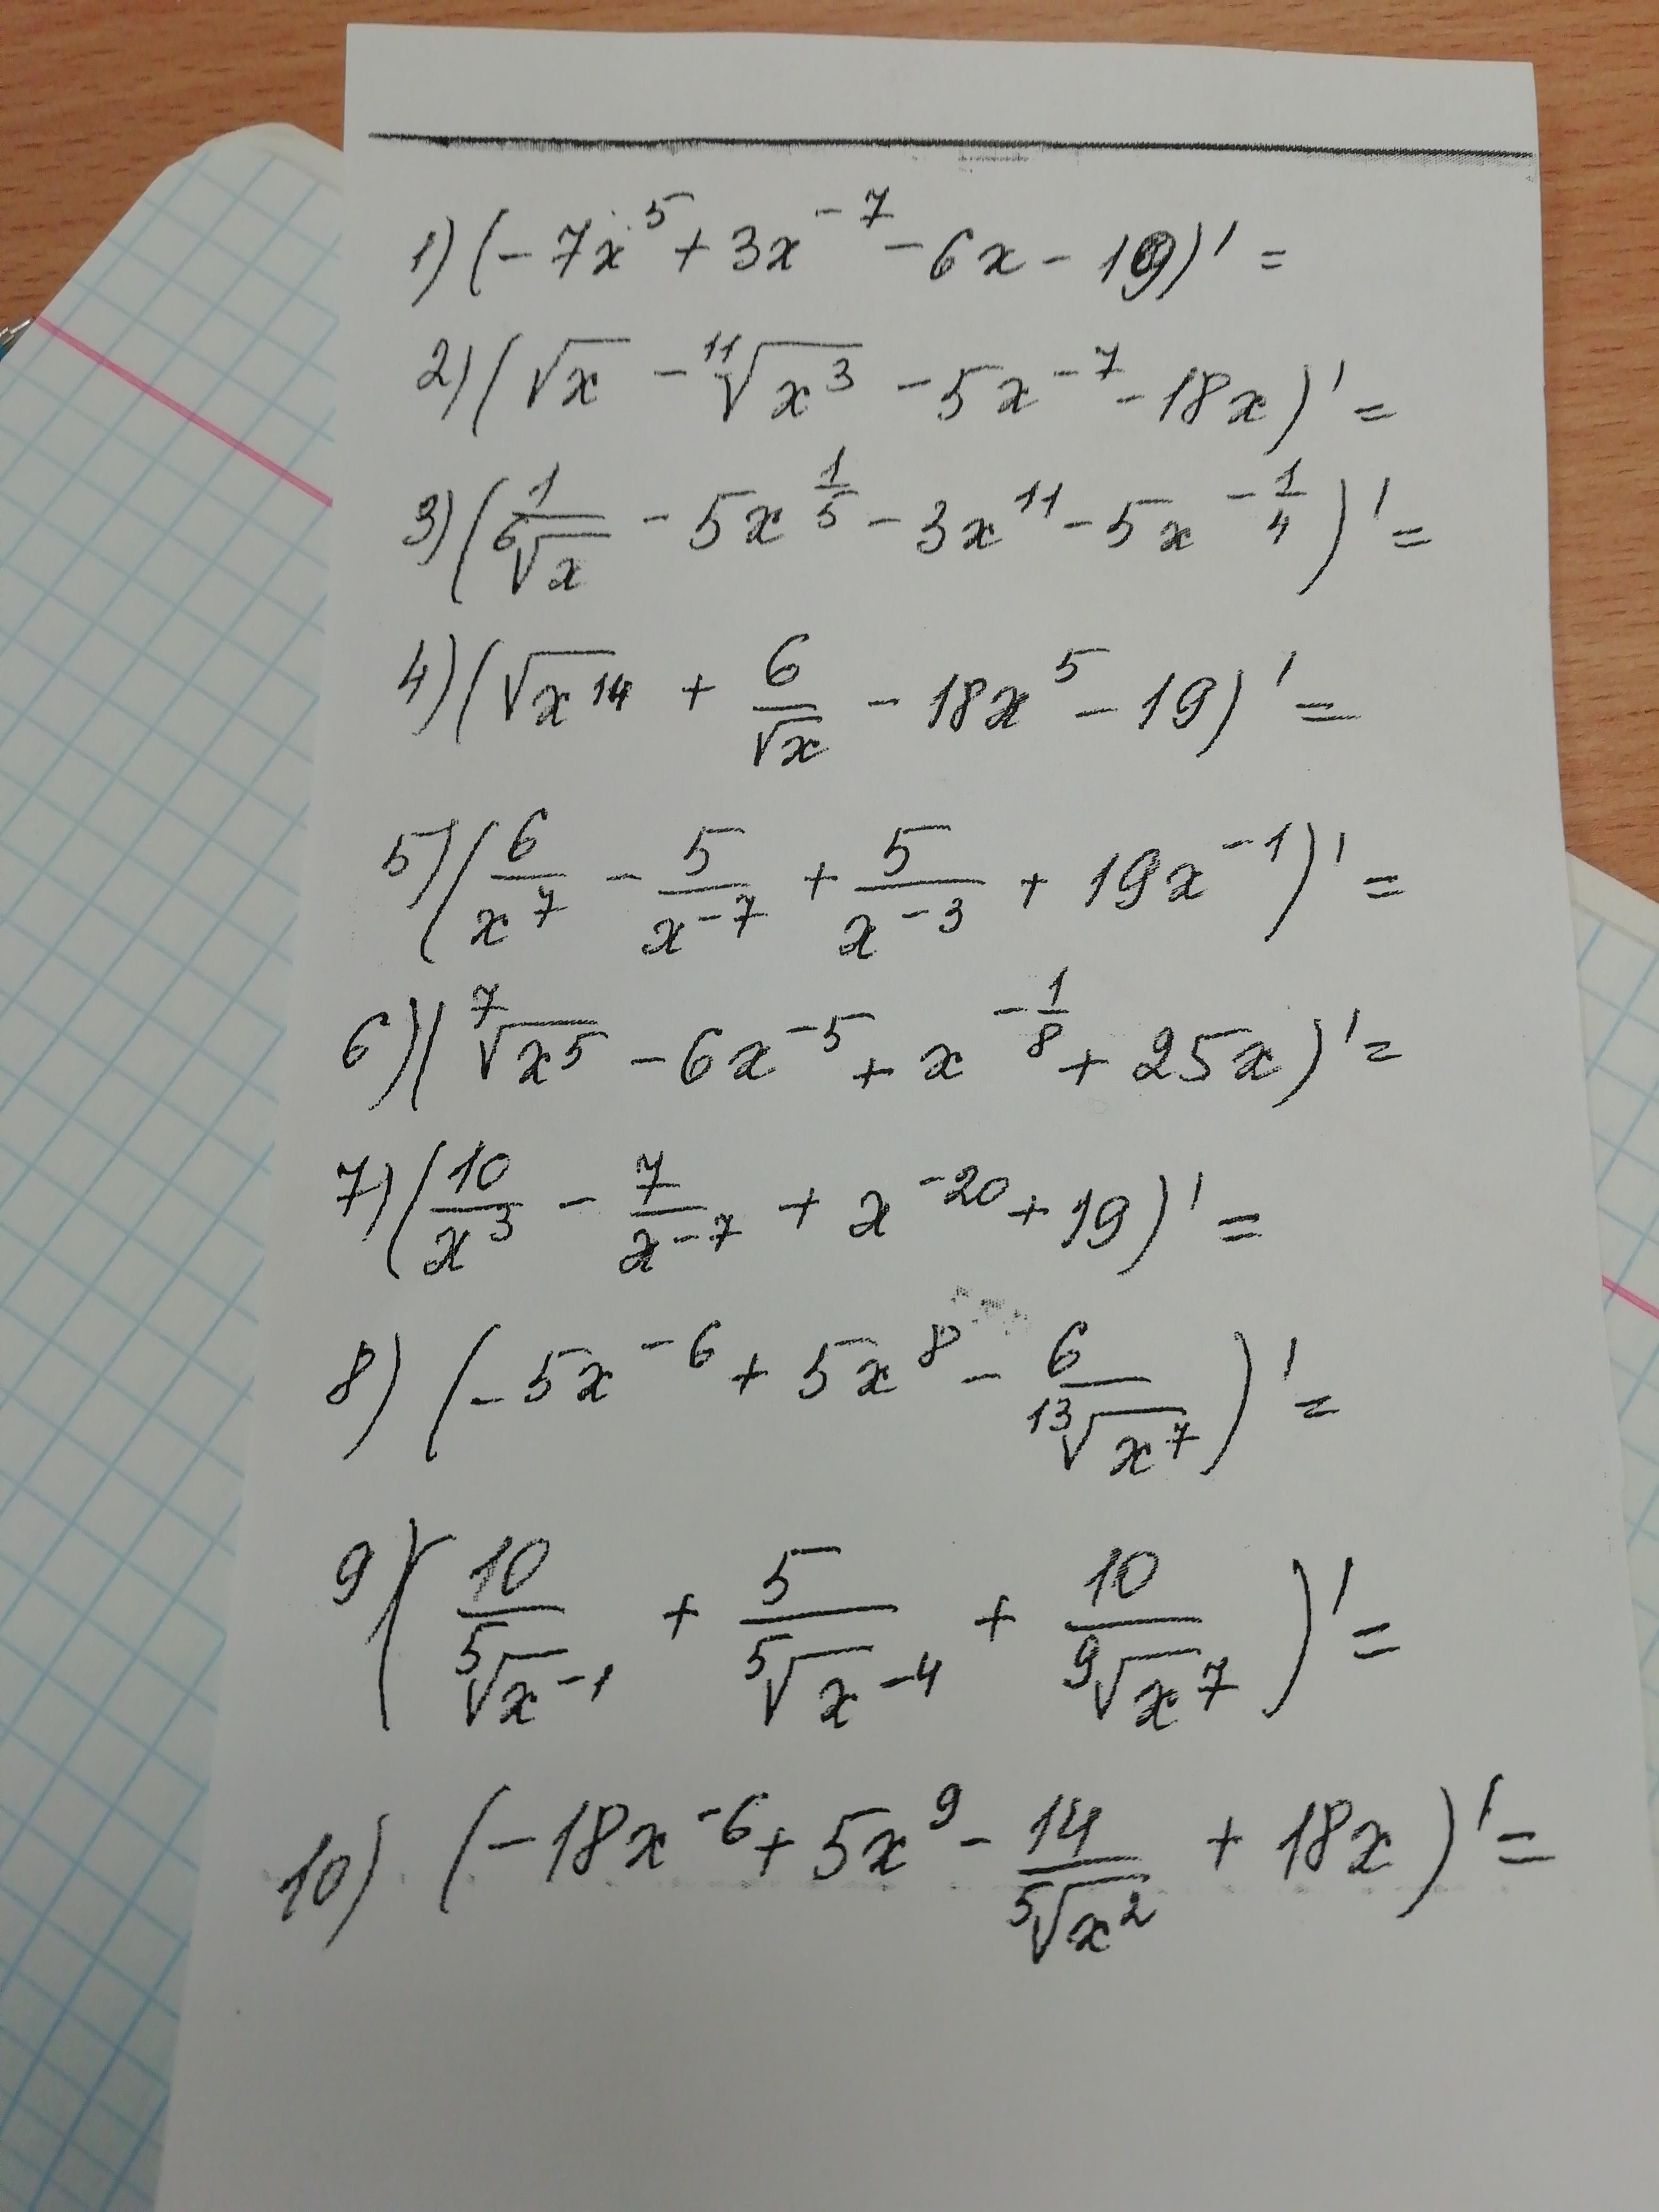 1) (-7x⁵ + 3x⁻⁷ - 6x - 19)' =
2) (√x - ¹¹√(x³) - 5x⁻⁷ - 18x)' =
3) (1/⁶√x - 5x^(1/5) - 3x¹¹ - 5x^(-1/4))' =
4) (√x¹⁴ + 6/√x - 18x⁵ - 19)' =
5) (6/x⁷ - 5/x⁻⁷ + 5/x⁻³ + 19x⁻¹)' =
6) (⁷√(x⁵) - 6x⁻⁵ + x^(-1/8) + 25x)' =
7) (10/x³ - 7/x⁻⁷ + x⁻²⁰ + 19)' =
8) (-5x⁻⁶ + 5x⁸ - 6/¹³√(x⁷))' =
9) (10/⁵√x⁻¹ + 5/⁵√x⁻⁴ + 10/⁹√x⁷)' =
10) (-18x⁻⁶ + 5x⁹ - 14/⁵√(x²) + 18x)' =